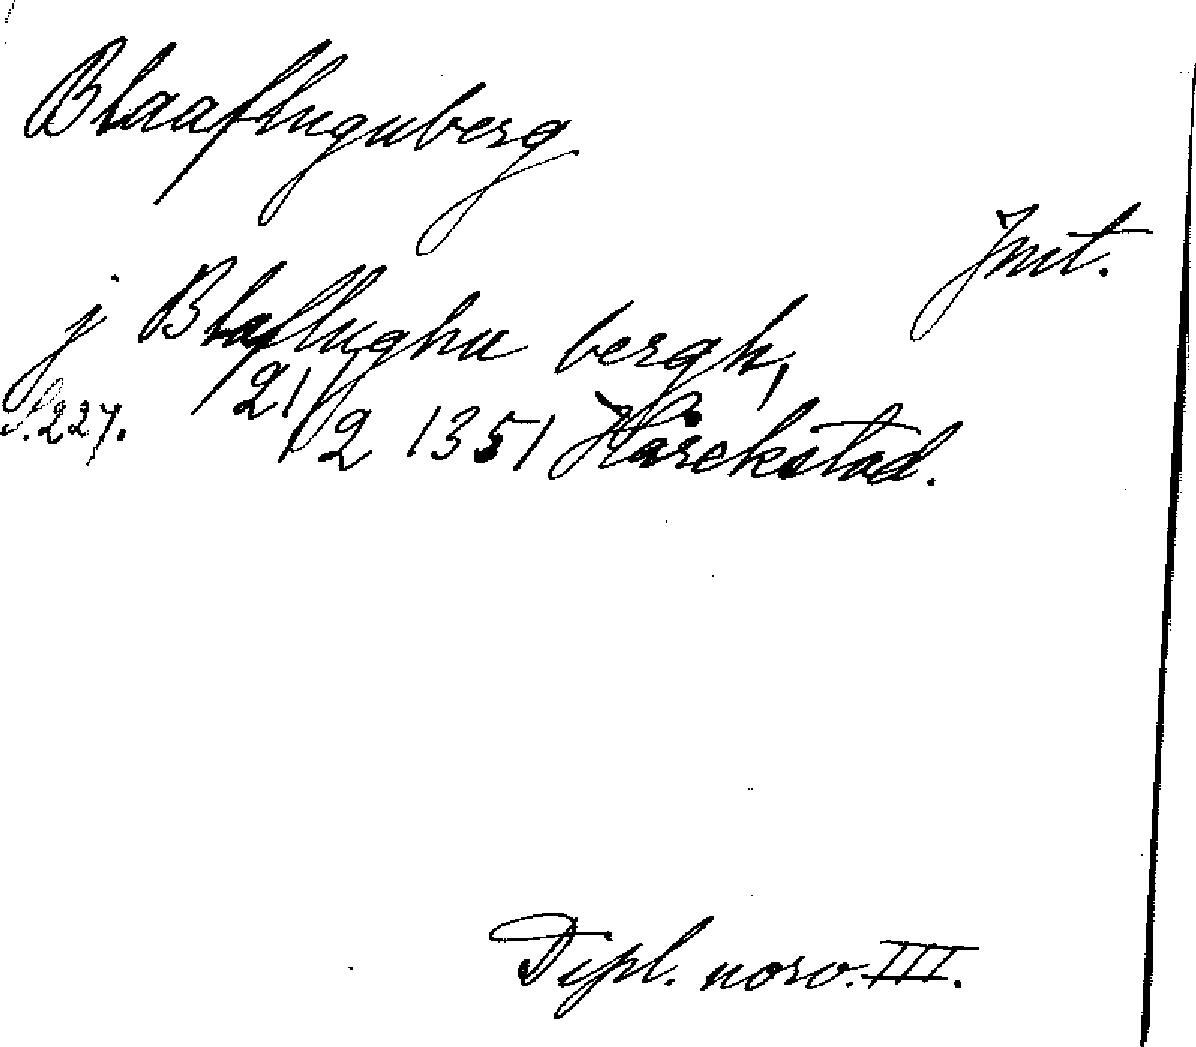 Blaafluguberg
Jmt.
j Blaflughu bergh,
S. 227. 21/2 1351 Hårekstad.
Dipl. norv. III.